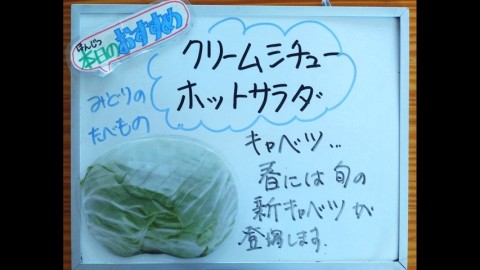 ほんじつ
本日のおすすめ
クリームシチュー
ホットサラダ
みどりの
たべもの
キャベツ…
春には旬の
新キャベツが
登場します.